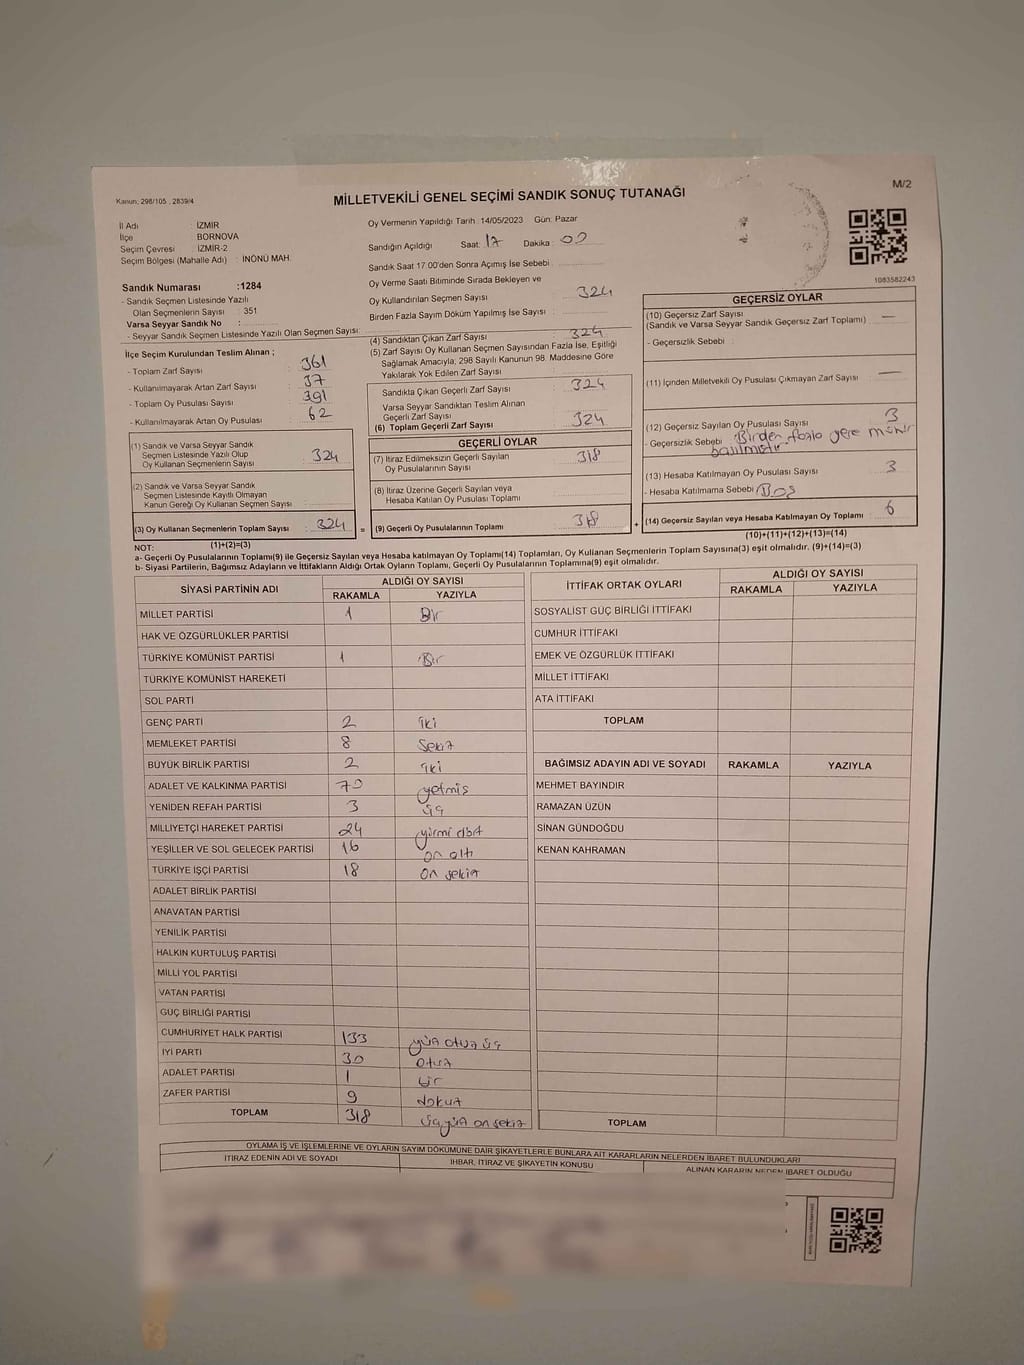 M/2
Kanun; 298/105 , 2839/4
MİLLETVEKİLİ GENEL SEÇİMİ SANDIK SONUÇ TUTANAĞI
İl Adı : İZMİR
İlçe : BORNOVA
Seçim Çevresi : İZMİR-2
Seçim Bölgesi (Mahalle Adı) : İNÖNÜ MAH.
Oy Vermenin Yapıldığı Tarih 14/05/2023 Gün: Pazar
Sandığın Açıldığı Saat: 17 Dakika : 00
Sandık Saat 17:00'den Sonra Açımış İse Sebebi :
Oy Verme Saati Bitiminde Sırada Bekleyen ve
Oy Kullandırılan Seçmen Sayısı : 324
Birden Fazla Sayım Döküm Yapılmış İse Sayısı :
1083582243
Sandık Numarası :1284
- Sandık Seçmen Listesinde Yazılı
Olan Seçmenlerin Sayısı : 351
Varsa Seyyar Sandık No :
- Seyyar Sandık Seçmen Listesinde Yazılı Olan Seçmen Sayısı:
İlçe Seçim Kurulundan Teslim Alınan ;
- Toplam Zarf Sayısı : 361
- Kullanılmayarak Artan Zarf Sayısı : 37
- Toplam Oy Pusulası Sayısı : 391
- Kullanılmayarak Artan Oy Pusulası : 62
(1) Sandık ve Varsa Seyyar Sandık
Seçmen Listesinde Yazılı Olup
Oy Kullanan Seçmenlerin Sayısı : 324
(2) Sandık ve Varsa Seyyar Sandık
Seçmen Listesinde Kayıtlı Olmayan
Kanun Gereği Oy Kullanan Seçmen Sayısı :
(3) Oy Kullanan Seçmenlerin Toplam Sayısı : 324
(1)+(2)=(3)
(4) Sandıktan Çıkan Zarf Sayısı : 324
(5) Zarf Sayısı Oy Kullanan Seçmen Sayısından Fazla İse, Eşitliği
Sağlamak Amacıyla; 298 Sayılı Kanunun 98. Maddesine Göre
Yakılarak Yok Edilen Zarf Sayısı :
Sandıkta Çıkan Geçerli Zarf Sayısı : 324
Varsa Seyyar Sandıktan Teslim Alınan
Geçerli Zarf Sayısı :
(6) Toplam Geçerli Zarf Sayısı : 324
GEÇERLİ OYLAR
(7) İtiraz Edilmeksizin Geçerli Sayılan
Oy Pusulalarının Sayısı : 318
(8) İtiraz Üzerine Geçerli Sayılan veya
Hesaba Katılan Oy Pusulası Toplamı :
= (9) Geçerli Oy Pusulalarının Toplamı : 318
GEÇERSİZ OYLAR
(10) Geçersiz Zarf Sayısı : —
(Sandık ve Varsa Seyyar Sandık Geçersiz Zarf Toplamı)
- Geçersizlik Sebebi :
(11) İçinden Milletvekili Oy Pusulası Çıkmayan Zarf Sayısı : —
(12) Geçersiz Sayılan Oy Pusulası Sayısı : 3
- Geçersizlik Sebebi : Birden fazla yere mühür
basılmıştır.
(13) Hesaba Katılmayan Oy Pusulası Sayısı : 3
- Hesaba Katılmama Sebebi : Boş
+ (14) Geçersiz Sayılan veya Hesaba Katılmayan Oy Toplamı : 6
(10)+(11)+(12)+(13)=(14)
NOT:
a- Geçerli Oy Pusulalarının Toplamı(9) ile Geçersiz Sayılan veya Hesaba katılmayan Oy Toplamı(14) Toplamları, Oy Kullanan Seçmenlerin Toplam Sayısına(3) eşit olmalıdır. (9)+(14)=(3)
b- Siyasi Partilerin, Bağımsız Adayların ve İttifakların Aldığı Ortak Oyların Toplamı, Geçerli Oy Pusulalarının Toplamına(9) eşit olmalıdır.
SİYASİ PARTİNİN ADI ALDIĞI OY SAYISI
RAKAMLA YAZIYLA
MİLLET PARTİSİ 1 Bir
HAK VE ÖZGÜRLÜKLER PARTİSİ
TÜRKİYE KOMÜNİST PARTİSİ 1 Bir
TÜRKİYE KOMÜNİST HAREKETİ
SOL PARTİ
GENÇ PARTİ 2 iki
MEMLEKET PARTİSİ 8 Sekiz
BÜYÜK BİRLİK PARTİSİ 2 iki
ADALET VE KALKINMA PARTİSİ 70 yetmiş
YENİDEN REFAH PARTİSİ 3 üç
MİLLİYETÇİ HAREKET PARTİSİ 24 yirmi dört
YEŞİLLER VE SOL GELECEK PARTİSİ 16 on altı
TÜRKİYE İŞÇİ PARTİSİ 18 on sekiz
ADALET BİRLİK PARTİSİ
ANAVATAN PARTİSİ
YENİLİK PARTİSİ
HALKIN KURTULUŞ PARTİSİ
MİLLİ YOL PARTİSİ
VATAN PARTİSİ
GÜÇ BİRLİĞİ PARTİSİ
CUMHURİYET HALK PARTİSİ 133 yüz otuz üç
İYİ PARTİ 30 otuz
ADALET PARTİSİ 1 bir
ZAFER PARTİSİ 9 dokuz
TOPLAM 318 üçyüz on sekiz
İTTİFAK ORTAK OYLARI ALDIĞI OY SAYISI
RAKAMLA YAZIYLA
SOSYALİST GÜÇ BİRLİĞİ İTTİFAKI
CUMHUR İTTİFAKI
EMEK VE ÖZGÜRLÜK İTTİFAKI
MİLLET İTTİFAKI
ATA İTTİFAKI
TOPLAM
BAĞIMSIZ ADAYIN ADI VE SOYADI RAKAMLA YAZIYLA
MEHMET BAYINDIR
RAMAZAN ÜZÜN
SİNAN GÜNDOĞDU
KENAN KAHRAMAN
TOPLAM
OYLAMA İŞ VE İŞLEMLERİNE VE OYLARIN SAYIM DÖKÜMÜNE DAİR ŞİKAYETLERLE BUNLARA AİT KARARLARIN NELERDEN İBARET BULUNDUKLARI
İTİRAZ EDENİN ADI VE SOYADI İHBAR, İTİRAZ VE ŞİKAYETİN KONUSU ALINAN KARARIN NEDEN İBARET OLDUĞU